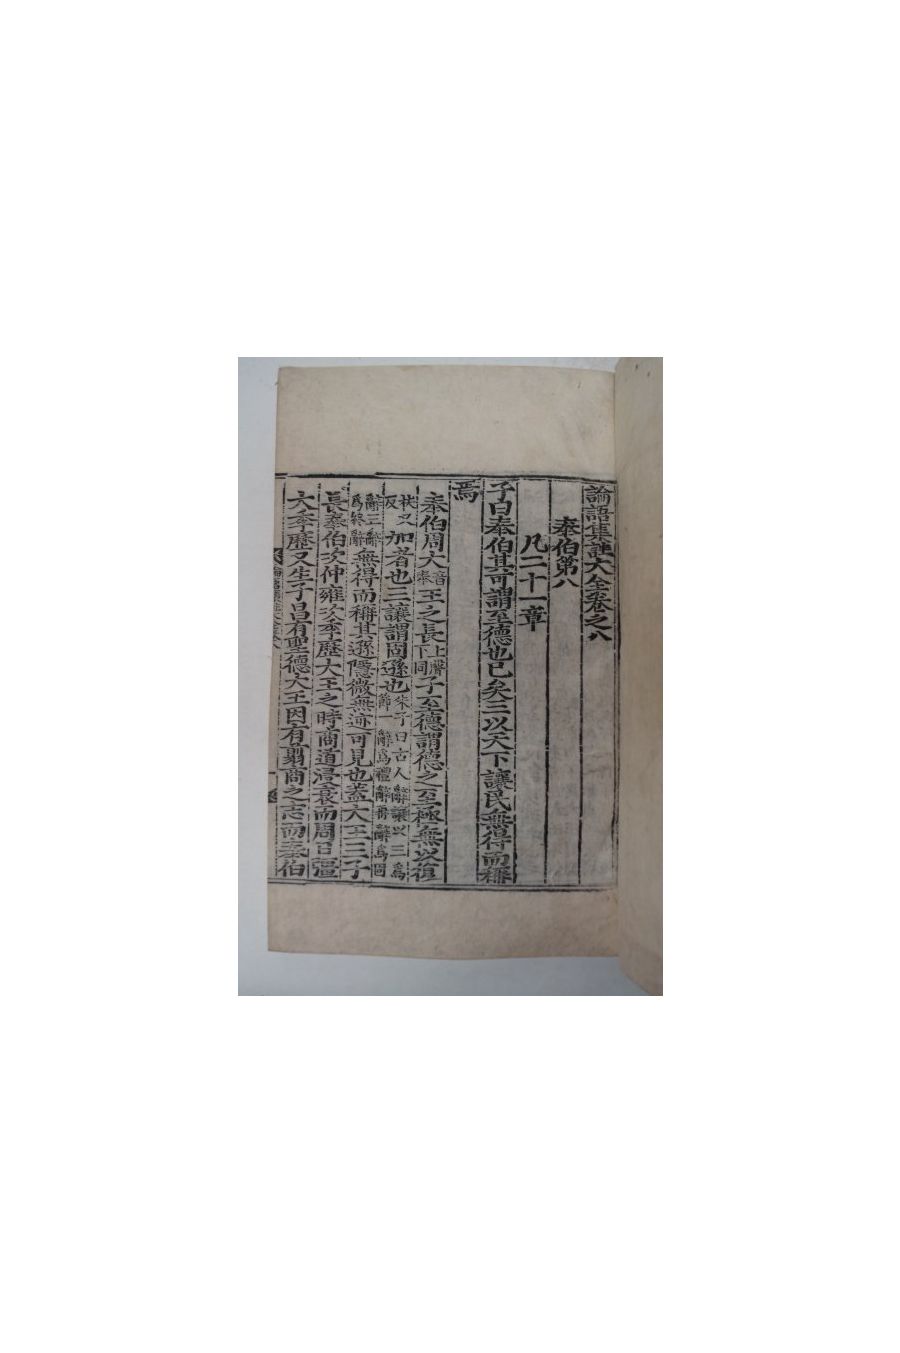 論語集註大全卷之八
泰伯第八
凡二十一章
子曰泰伯其可謂至德也已矣三以天下讓民無得而稱
焉
泰伯周大音泰王之長上聲下同子至德謂德之至極無以復
扶又反加者也三讓謂固遜也朱子曰古人辭讓以三爲節一辭爲禮辭再辭爲固
辭三辭爲終辭無得而稱其遜隱微無迹可見也蓋大王三子
長泰伯次仲雍次季歷大王之時商道浸衰而周日彊
大季歷又生子昌有聖德大王因有翦商之志而泰伯